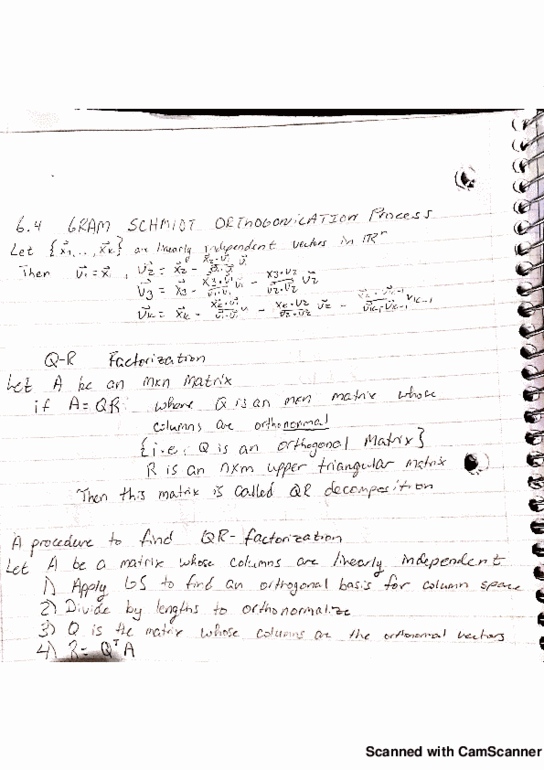 6.4 GRAM SCHMIDT ORTHOGONICATION Process
Let {x⃗1, .., x⃗k} are linearly independent vectors in ℝⁿ
Then v⃗1 = x⃗1, v⃗2 = x⃗2 - x⃗2·v⃗1/v⃗1·v⃗1 v⃗1
v⃗3 = x⃗3 - x⃗3·v⃗1/v⃗1·v⃗1 v⃗1 - x3·v2/v⃗2·v⃗2 v⃗2
v⃗k = x⃗k - xk·v⃗1/v⃗1·v⃗1 v1 - xk·v2/v⃗2·v⃗2 v⃗2 - xk·vk-1/vk-1·vk-1 vk-1
Q-R Factorization
Let A be an mxn Matrix
if A = QR where Q is an mxn matrix whose
columns are orthonormal
{i.e. Q is an orthogonal Matrix}
R is an nxm upper triangular matrix
Then this matrix is called QR decomposition
A procedure to find QR-factorization
Let A be a matrix whose columns are linearly independent
1) Apply GS to find an orthogonal basis for column space
2) Divide by lengths to orthonormalize
3) Q is the matrix whose columns are the orthonomal vectors
4) R = QᵀA
Scanned with CamScanner